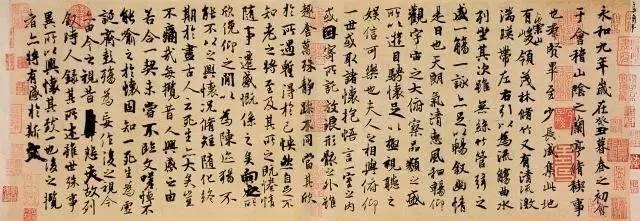 永和九年歲在癸丑暮春之初會
于會稽山陰之蘭亭脩禊事
也群賢畢至少長咸集此地
有崇山峻領茂林脩竹又有清流激
湍暎帶左右引以為流觴曲水
列坐其次雖無絲竹管弦之
盛一觴一詠亦足以暢敘幽情
是日也天朗氣清惠風和暢仰
觀宇宙之大俯察品類之盛
所以遊目騁懷足以極視聽之
娛信可樂也夫人之相與俯仰
一世或取諸懷抱悟言一室之內
或因寄所託放浪形骸之外雖
趣舍萬殊靜躁不同當其欣
於所遇蹔得於己怏然自足不
知老之將至及其所之既惓情
隨事遷感慨係之矣向之所欣
俛仰之閒以為陳迹猶不
能不以之興懷況脩短隨化終
期於盡古人云死生亦大矣豈
不痛哉每攬昔人興感之由
若合一契未嘗不臨文嗟悼不
能喻之於懷固知一死生為虛
誕齊彭殤為妄作後之視今
亦由今之視昔悲夫故列
敘時人錄其所述雖世殊事
異所以興懷其致一也後之攬
者亦將有感於斯文